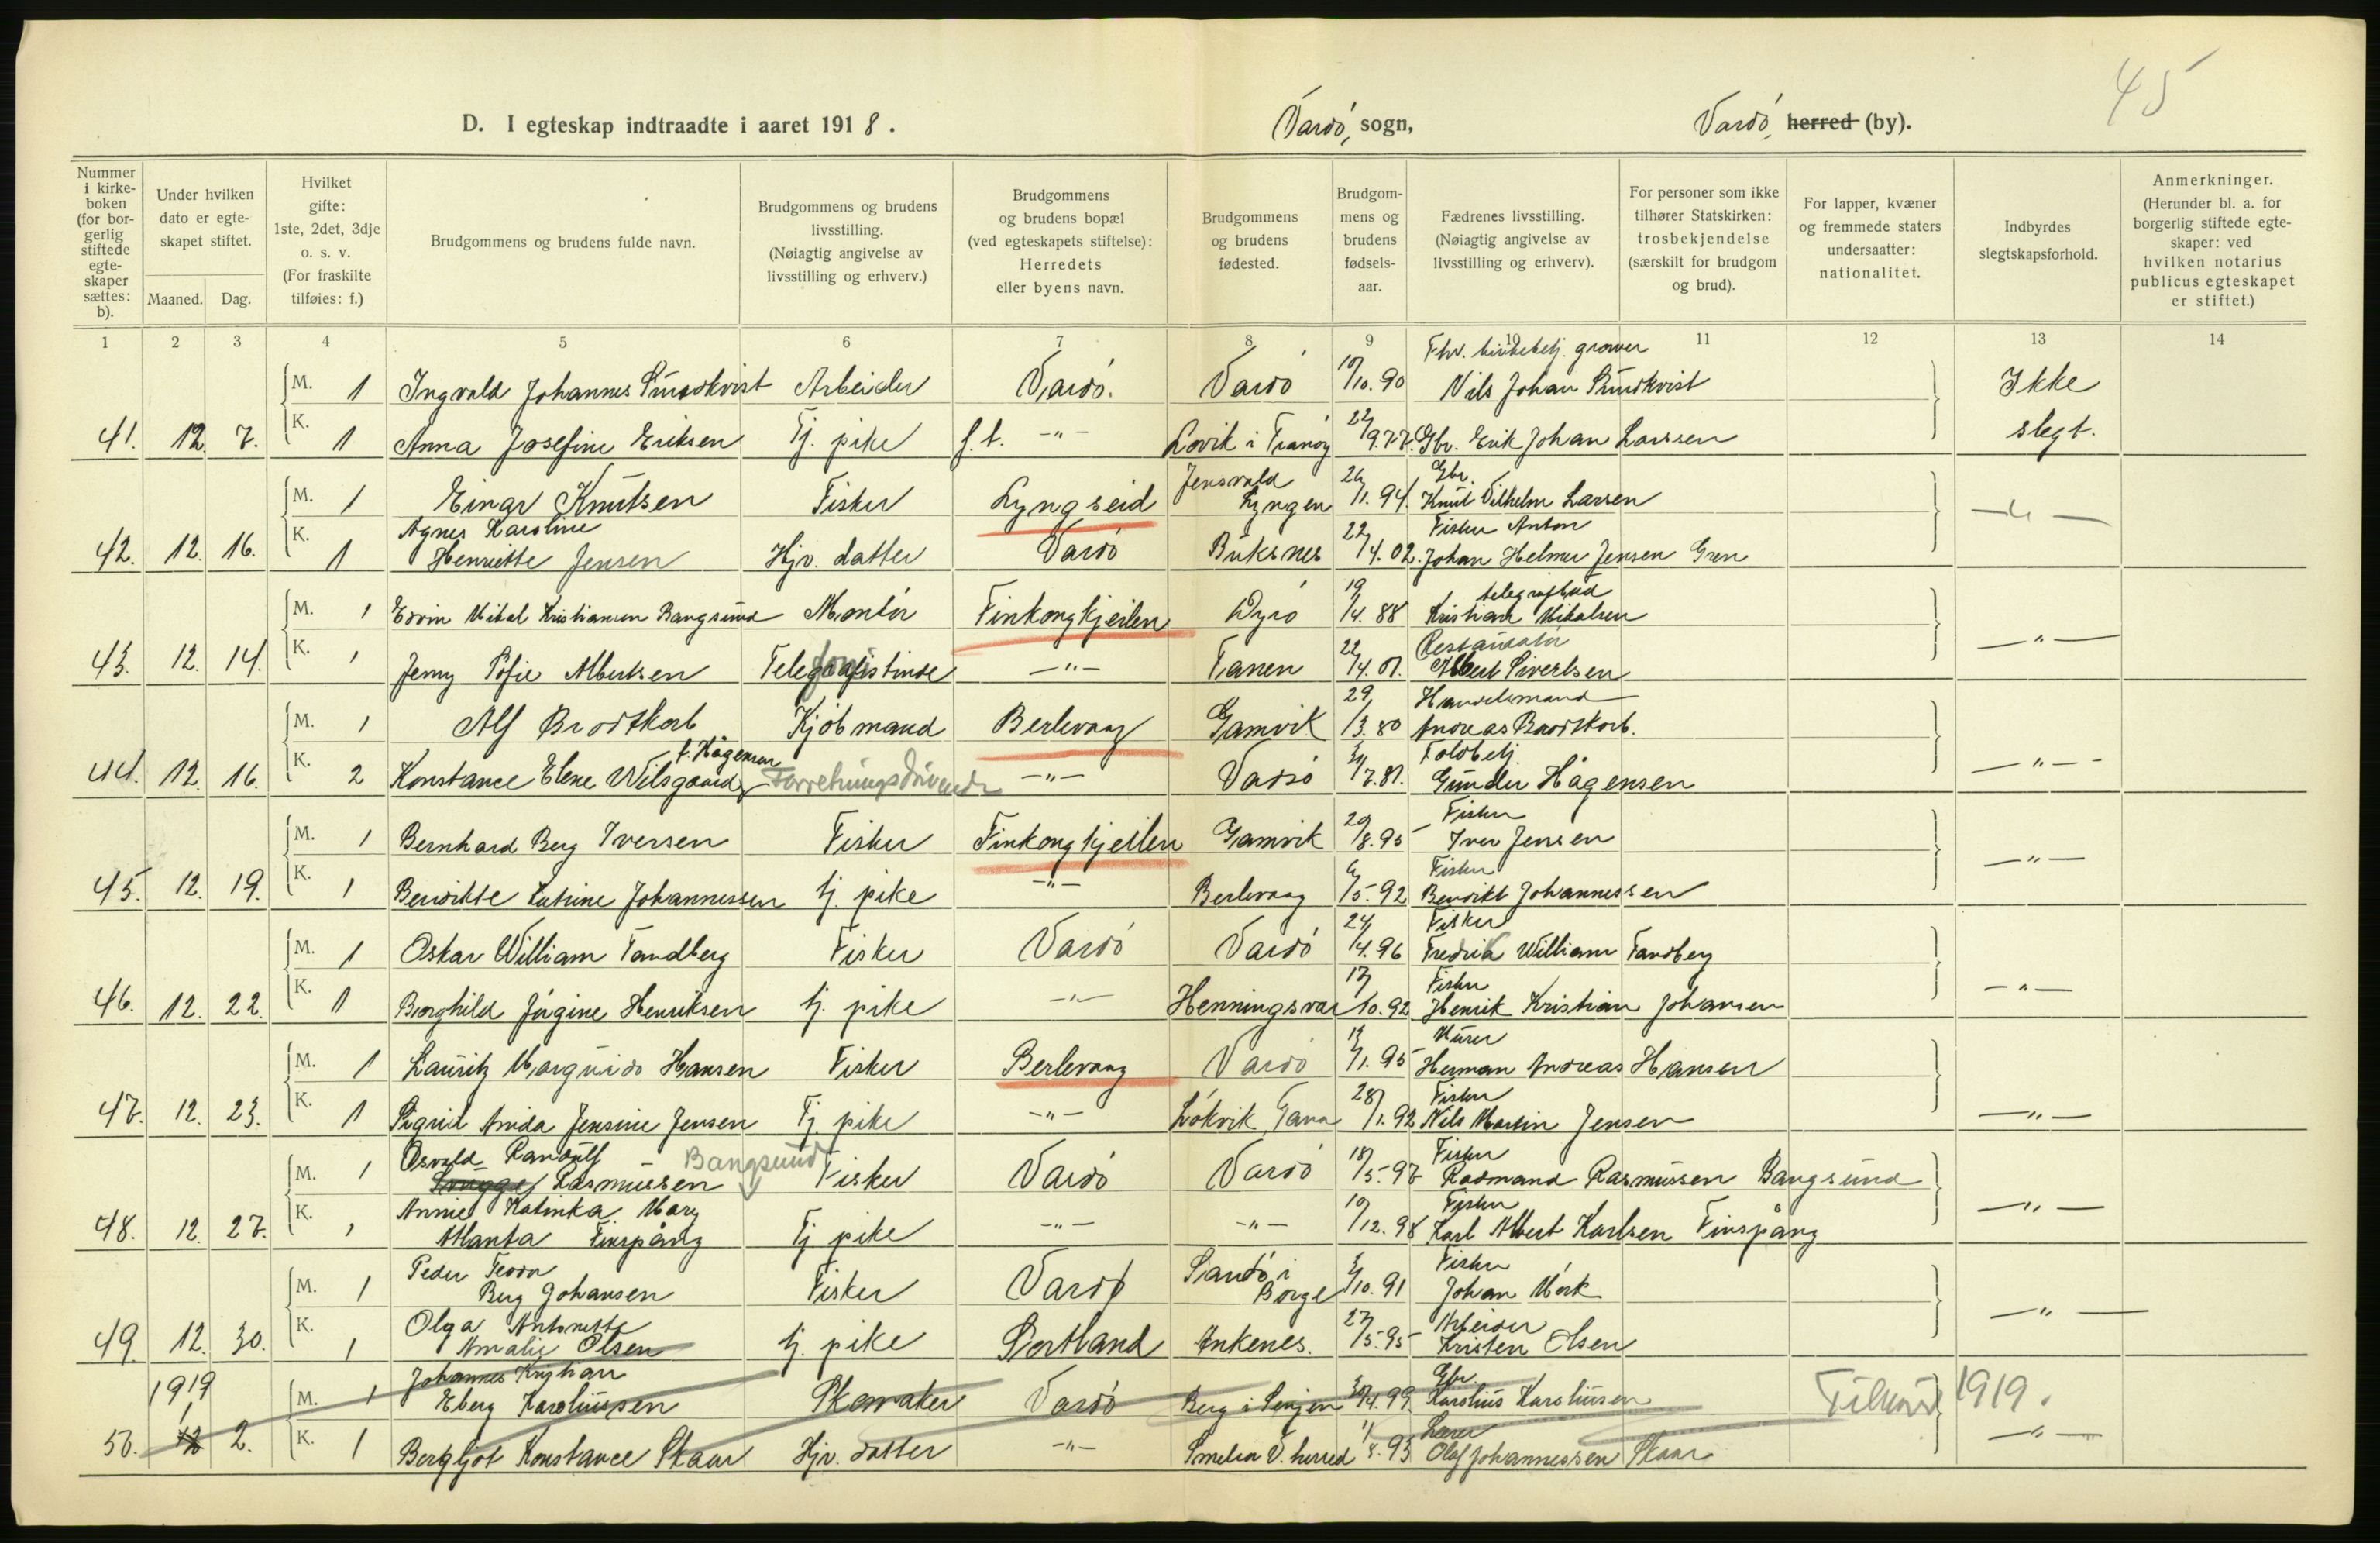 45
D. I egteskap indtraadte i aaret 1918. Vardö, sogn, Vardö, herred (by).
Nummer i kirkeboken (for borgerlig stiftede egteskaper sættes: b).
Under hvilken dato er egteskapet stiftet. Maaned. Dag.
Hvilket gifte: 1ste, 2det, 3dje o. s. v. (For fraskilte tilføies: f.)
Brudgommens og brudens fulde navn.
Brudgommens og brudens livsstilling. (Nøiagtig angivelse av livsstilling og erhverv.)
Brudgommens og brudens bopæl (ved egteskapets stiftelse): Herredets eller byens navn.
Brudgommens og brudens fødested.
Brudgommens og brudens fødselsaar.
Fædrenes livsstilling. (Nøiagtig angivelse av livsstilling og erhverv).
For personer som ikke tilhører Statskirken: trosbekjendelse (særskilt for brudgom og brud).
For lapper, kvæner og fremmede staters undersaatter: nationalitet.
Indbyrdes slegtskapsforhold.
Anmerkninger. (Herunder bl. a. for borgerlig stiftede egteskaper: ved hvilken notarius publicus egteskapet er stiftet.)
1 2 3 4 5 6 7 8 9 10 11 12 13 14
M. 1 Ingvald Johannes Sundkvist Arbeider Vardö. Vardö 10/10. 90 Fhv. graver Nils Johan Sundkvist Ikke
41. 12. 7. K. 1 Anna Josefine Eriksen Tj. pike f.t. -"- Lovik i Tranöy 22/9.77. Gbr. Erik Johan Larssen slegt.
M. 1 Einar Knutsen Fisker Lyngseid Jensvold Lyngen 26/1. 94. Gbr. Knut Vilhelm Larsen
42. 12. 16. K. 1 Agnes Karoline Henriette Jensen Hjv. datter Vardö Buksnes 22/4. 02. Fisker Anton Johan Helmer Jensen Gren -"-
M. 1 Edvin Mikal Kristiansen Bangsund Montör Finkongkjeilen Dyrö 19/4. 88 telegrafbud Kristian Mikalsen
43. 12. 14. K. 1 Jenny Sofie Albertsen Telefonistinde -"- Tanen 22/4. 01. Restauratör Albert Sivertsen -"-
M. 1 Alf Brodtkorb Kjöbmand Berlevaag Gamvik 29/3. 80 Handelsmand Andreas Brodtkorb.
44. 12. 16. K. 2 Konstance Elene Wilsgaard f. Hågensen Forretningsdrivende -"- Vadsö 3/7.81. Toldbetj. Gunder Hågensen -"-
M. 1 Bernhard Berg Iversen Fisker Finkongkjeilen Gamvik 20/8. 95 Fisker Iver Jensen
45. 12. 19. K. 1 Bendikte Katrine Johannessen tj. pike -"- Berlevaag 6/5. 92 Fisker Bendikt Johannessen -"-
M. 1 Oskar William Tandberg Fisker Vardö Vardö 24/4. 96 Fisker Fredrik William Tandberg
46. 12. 22. K. 1 Borghild Jörgine Henriksen tj. pike -"- Henningsvær 17/10. 92 Fisker Henrik Kristian Johansen -"-
M. 1 Lauritz Marqvido Hansen Fisker Berlevaag Vardö 13/1. 95 Murer Herman Andreas Hansen
47. 12. 23. K. 1 Sigrid Anida Jensine Jensen Tj. pike -"- Lökvik, Tana 28/1. 92 Fisker Nils Martin Jensen -"-
M. 1 Osvald Randulf Rasmussen Bangsund Fisker Vardö Vardö 18/5. 97 Fisker Radmand Rasmussen Bangsund
48. 12. 27. K. 1 Annie Katinka Mary Atlanta Finspång Tj pike -"- -"- 10/12. 98 Fisker Karl Albert Karlsen Finspång -"-
M. 1 Peder Teodor Berg Johansen Fisker Vardö Sandö i Borge 3/10. 91 Fisker Johan Mörk
49. 12. 30. K. 1 Olga Antonette Amalie Olsen tj. pike Sortland Ankenes. 27/5. 95 Arbeider Kristen Olsen -"-
1919 M. 1 Johannes Kristian Eberg Karoliussen Skomaker Vardö Berg i Senjen 30/4. 99. Gbr. Karolius Karoliusen Tilhör 1919.
50. 1 2. K. 1 Bergljot Konstance Skaar Hjv. datter -"- V. herred 11/8. 93 Lærer Olaf Johannessen Skaar -"-